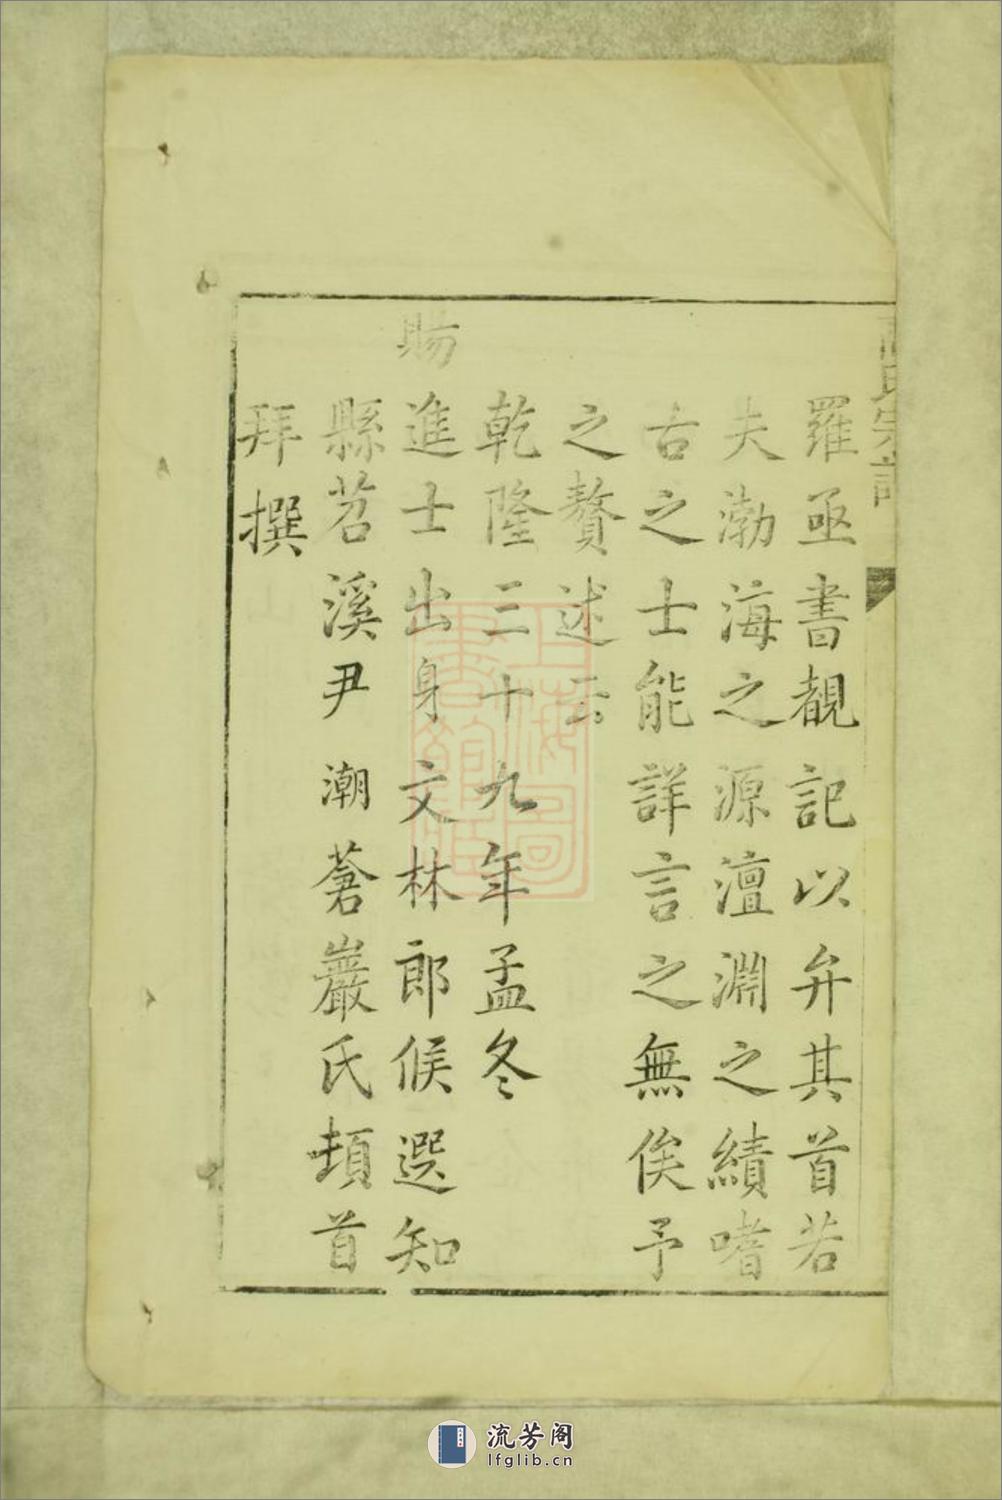 羅亟書覩記以弁其首若
夫渤海之源澶淵之績嗜
古之士能詳言之無俟予
之贅述云
乾隆三十九年孟冬
賜
進士出身文林郎候選知
縣苕溪尹潮蒼巖氏頓首
拜撰
高氏宗譜
上海圖書館藏
流芳阁
lfglib.cn